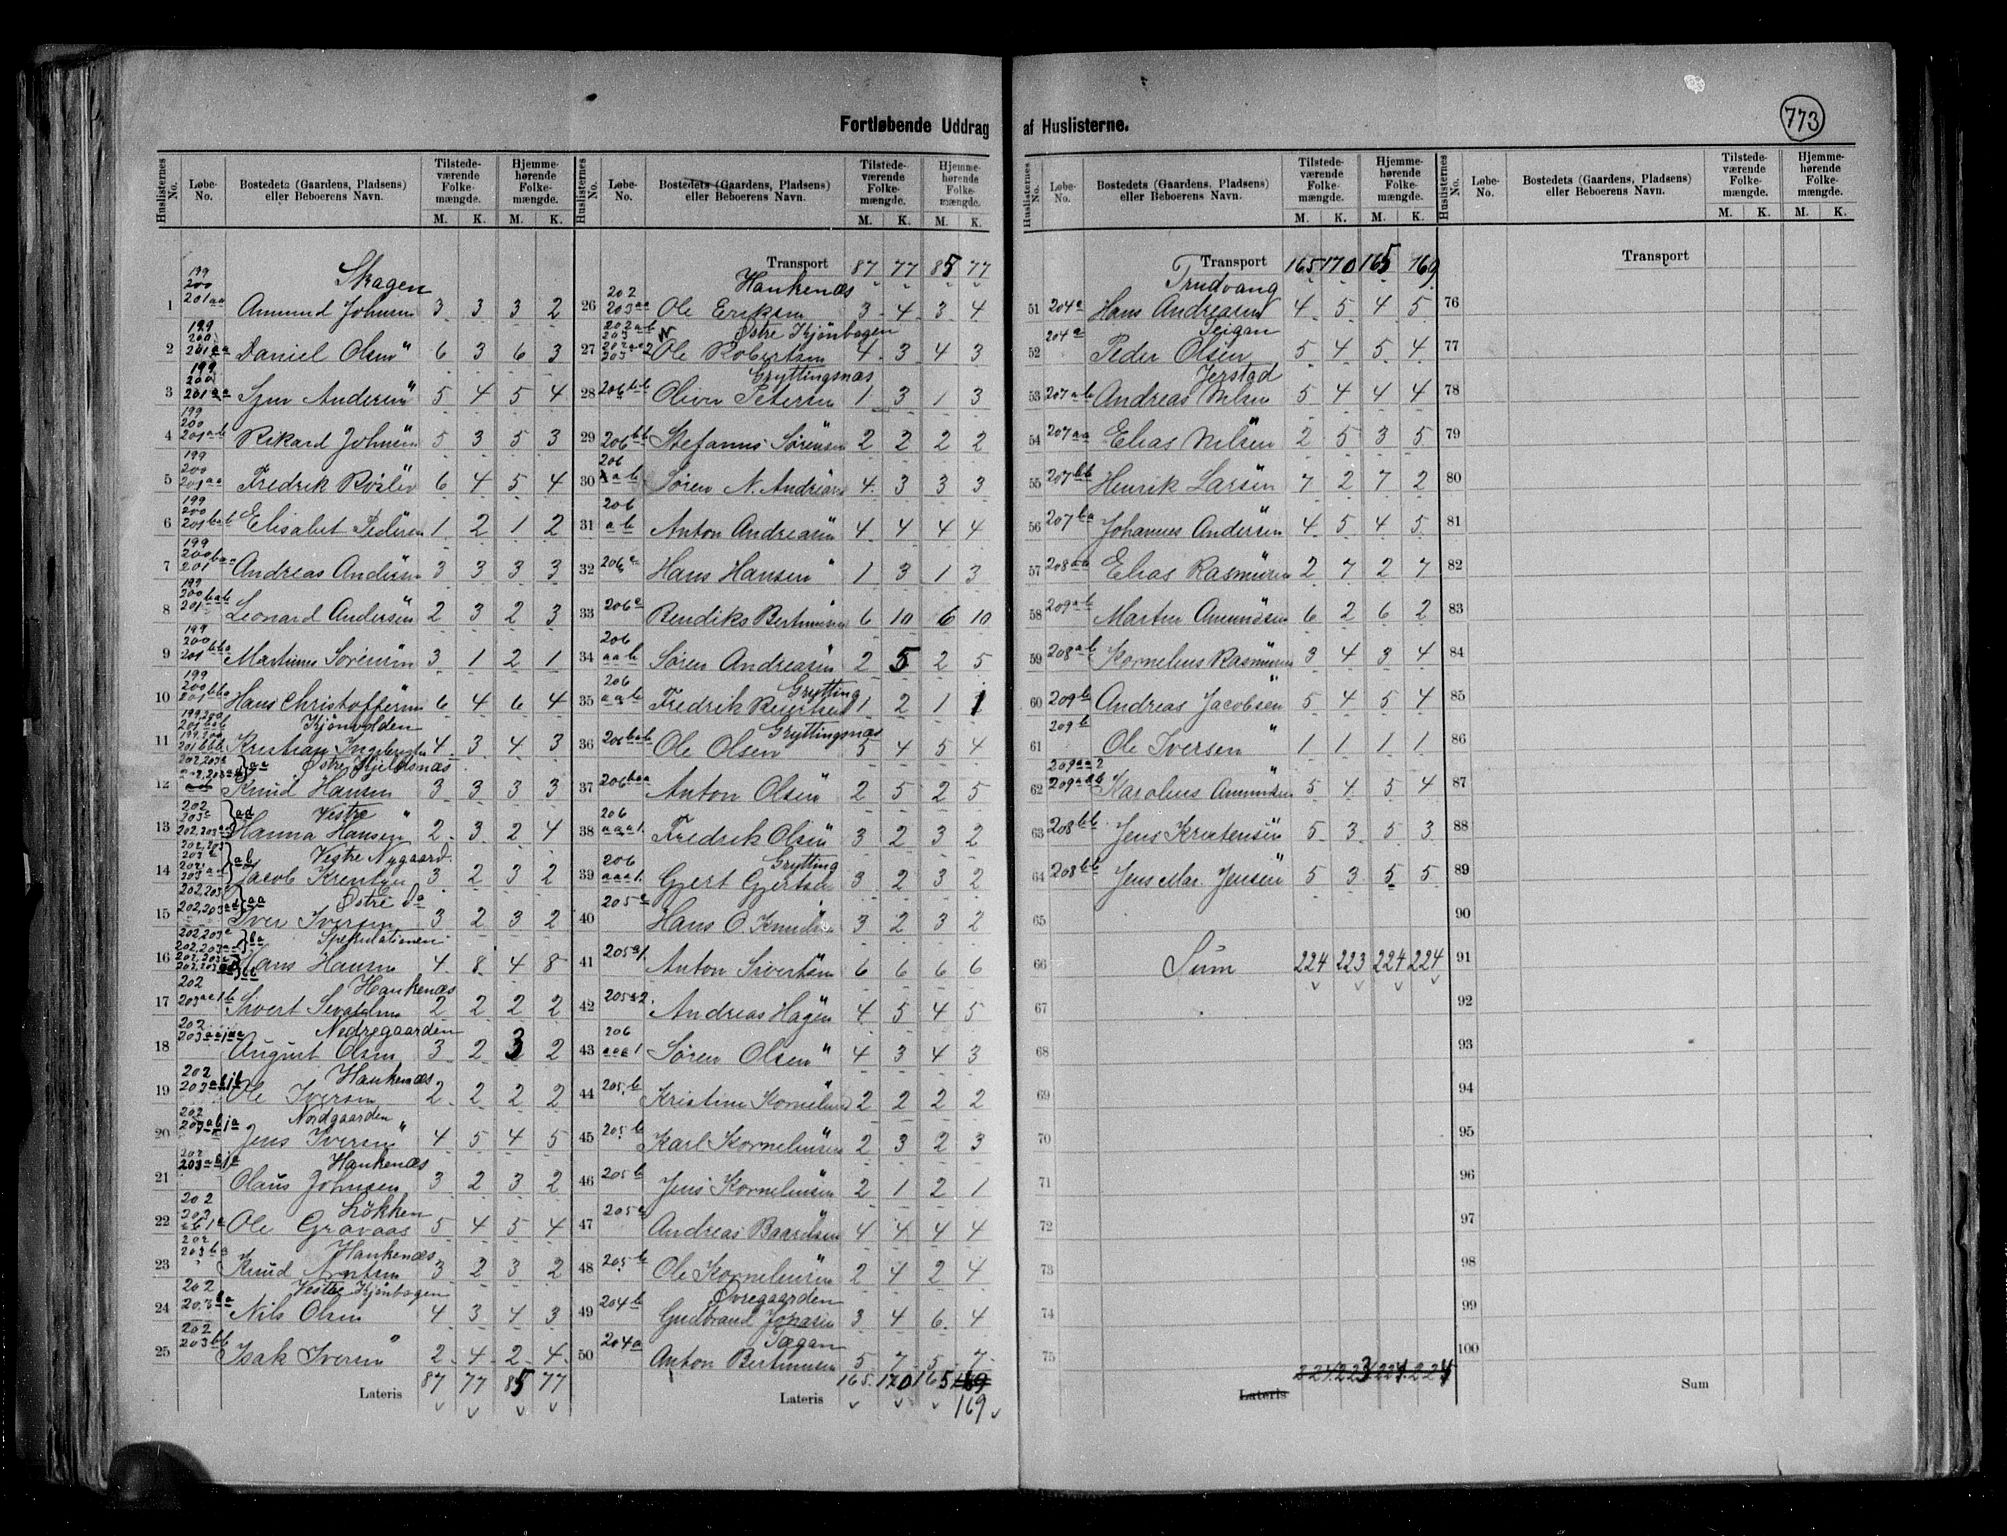 Fortløbende Uddrag af Huslisterne.
773
Huslisternes No. Løbe-No. Bostedets (Gaardens, Pladsens) eller Beboerens Navn. Tilstedeværende Folkemængde. M. K. Hjemmehørende Folkemængde. M. K.
199
200 Skagen
1 201aa Amund Johnsen 3 3 3 2
199
200
2 201aa Daniel Olsen " 6 3 6 3
199
200
3 201aa Andersen " 5 4 5 4
199
200
4 201ab Rikard Johnsen 5 3 5 3
199
200
5 201aa Fredrik 6 4 5 4
199
200
6 201bab Elisabet Pedersen 1 2 1 2
199
200
7 201baa Andreas Andersen 3 3 3 3
199
200
8 201bab Leonard Andersen 2 3 2 3
199
200
9 201bba Martinus Sørensen 3 1 2 1
199
200
10 201bba Hans Christoffersen 6 4 6 4
Kjönvolden
11 201bbb Kristian 4 3 4 3
Østre Kjeldsnæs
12 Knud Hansen 3 3 3 3
Vestre "
13 Hanna Hansen 2 3 2 4
Vestre Nygaard
14 Jacob 3 2 3 2
Østre Do
15 Iver Iversen 3 2 3 2
Spekulationen
16 Hans Hansen 4 8 4 8
202 Hankenæs
17 Sivert 2 2 2 2
202 Nedregaarden
18 August Olsen 3 2 3 2
202 Hankenæs
19 Ole Iversen 2 2 2 2
202 Nordgaarden
20 Jens Iversen " 4 5 4 5
202 Hankenæs
21 Olaus Johnsen 3 2 3 2
202 Løkken
203
22 ab1a Ole Gravaas 5 4 5 4
202 Hankenæs
23 203ba Knud Arntsen 3 2 3 2
202 Vestre Kjönbogen
24 203ba Nils Olsen 4 3 4 3
202
25 203bb Isak Iversen " 2 4 2 4
Lateris 87 77 85 77
Huslisternes No. Løbe-No. Bostedets (Gaardens, Pladsens) eller Beboerens Navn. Tilstedeværende Folkemængde. M. K. Hjemmehørende Folkemængde. M. K.
Transport 87 77 85 77
202 Hankenæs
26 203aa Ole Eriksen 3 4 3 4
Østre Kjönbogen
27 Ole Robertsen 4 3 4 3
Gryttingsnæs
28 206bb Oliver Petersen 1 3 1 3
29 206bb Stefanus Sørensen 2 2 2 2
206
30 aab Søren N. 4 3 3 3
206
31 ab Anton Andreasen 4 4 4 4
32 206a Hans Hansen " 1 3 1 3
33 206a Bendiks 6 10 6 10
206
34 aab Søren Andreasen 2 5 2 5
206 Grytting
35 aab Fredrik 1 2 1 1
Gryttingsnæs
36 206bab Ole Olsen 5 4 5 4
37 206baa Anton Olsen " 2 5 2 5
206
38 aaa1 Fredrik Olsen 3 2 3 2
206 Grytting
39 aaa1. Gjert Gjertsen 3 2 3 2
40 205a Hans O. Knudsen 3 2 3 2
41 205a1 Anton Sivertsen 6 6 6 6
42 205a2 Andreas Hagen 4 5 4 5
206
43 aaa1 Søren Olsen " 4 3 4 3
44 205b Kristine 2 2 2 2
45 205b Karl Korneliusen 2 3 2 3
46 205b Jens Korneliusen 2 1 2 1
47 205a Andreas Baardsen 4 4 4 4
48 205b Ole Korneliusen 2 4 2 4
Øvregaarden
49 204b Gudbrand 3 4 6 4
50 204a Anton Bertinusen 5 7 5 7
Lateris 165 170 165 169
169
Huslisternes No. Løbe-No. Bostedets (Gaardens, Pladsens) eller Beboerens Navn. Tilstedeværende Folkemængde. M. K. Hjemmehørende Folkemængde. M. K.
Transport 165 170 165 169
Trudvang
51 204a Hans Andreasen 4 5 4 5
Teigan
52 204a Peder Olsen 5 4 5 4
Jerstad
53 207ab Andreas Nilsen 5 4 4 4
54 207aa Elias Nilsen 2 5 3 5
55 207bb Henrik Larsen 7 2 7 2
56 207ba Johannes Andersen 4 5 4 5
57 208aa Elias Rasmusen 2 7 2 7
58 209ab Martin Amundsen 6 2 6 2
59 208ab Kornelius Rasmusen 3 4 3 4
60 209b Andreas Jacobsen 5 4 5 4
61 209b Ole Iversen " 1 1 1 1
209aa2
62 209aab Karolius Amundsen 5 4 5 4
63 208bb Jens Kristensen 5 3 5 3
64 208bb Jens Mar. Jensen 5 3 5 5
65
66 Sum 224 223 224 224
67
68
69
70
71
72
73
74
75
Lateris 224 223 224 224
Huslisternes No. Løbe-No. Bostedets (Gaardens, Pladsens) eller Beboerens Navn. Tilstedeværende Folkemængde. M. K. Hjemmehørende Folkemængde. M. K.
Transport
76
77
78
79
80
81
82
83
84
85
86
87
88
89
90
91
92
93
94
95
96
97
98
99
100
Sum